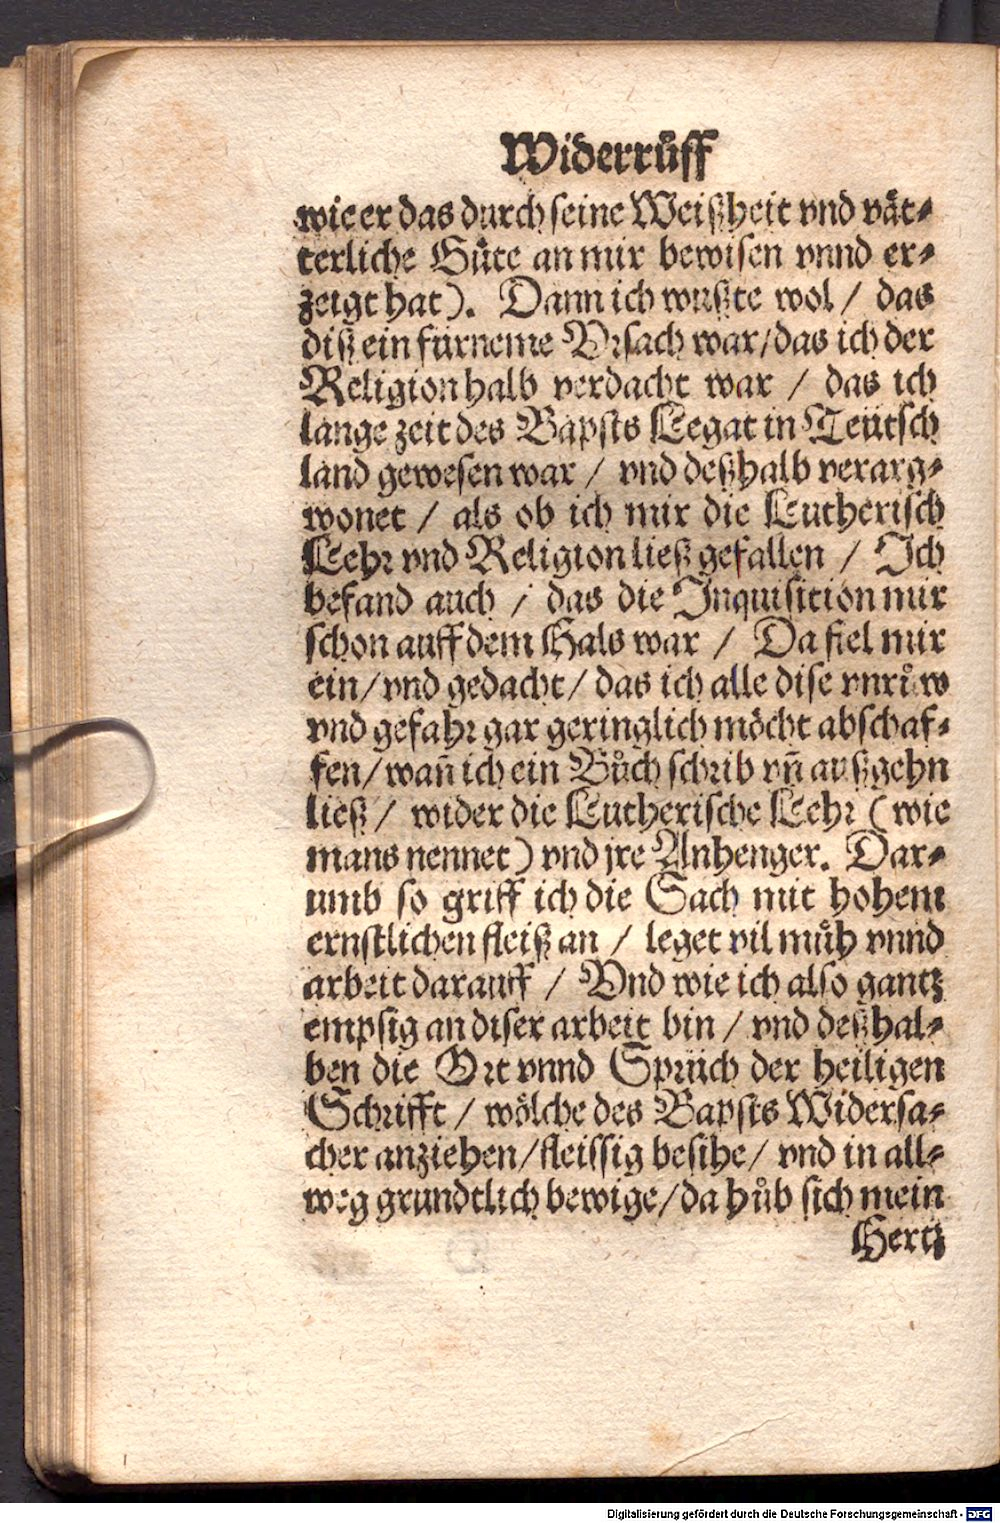 Widerrůff
wie er das durch seine Weißheit vnd våt⸗
terliche Gůte an mir bewisen vnnd er⸗
zeigt hat). Dann ich wußte wol / das
diß ein fürneme Vrsach war/das ich der
Religion halb verdacht war / das ich
lange zeit des Bapsts Legat in Teütsch
land gewesen war / vnd deßhalb verarg⸗
wonet / als ob ich mir die Lutherisch
Lehr vnd Religion ließ gefallen / Ich
befand auch / das die Inquisition mir
schon auff dem Hals war / Da fiel mir
ein/vnd gedacht/das ich alle dise vnrůw
vnd gefahr gar geringlich möcht abschaf⸗
fen/wañ ich ein Bůch schrib vñ außgehn
ließ / wider die Lutherische Lehr (wie
mans nennet) vnd jre Anhenger. Dar⸗
umb so griff ich die Sach mit hohem
ernstlichen fleiß an / leget vil můh vnnd
arbeit darauff / Vnd wie ich also gantz
empsig an diser arbeit bin / vnd deßhal⸗
ben die Ort vnnd Sprüch der heiligen
Schrifft / wölche des Bapsts Widersa⸗
cher anziehen/fleissig besihe/ vnd in all⸗
weg grundtlich bewige/da hůb sich mein
Hertz
Digitalisierung gefördert durch die Deutsche Forschungsgemeinschaft - DFG